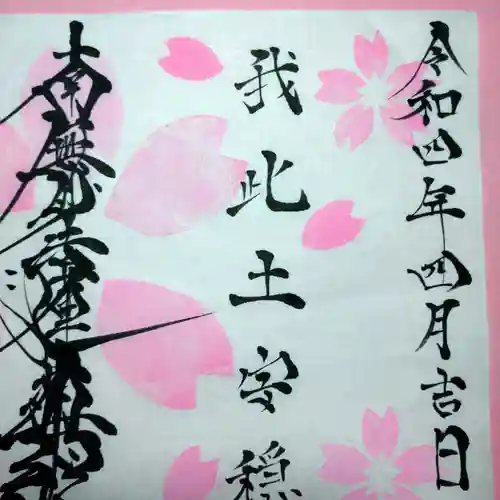 令和四年四月吉日
我此土安穏
南無妙法蓮華経